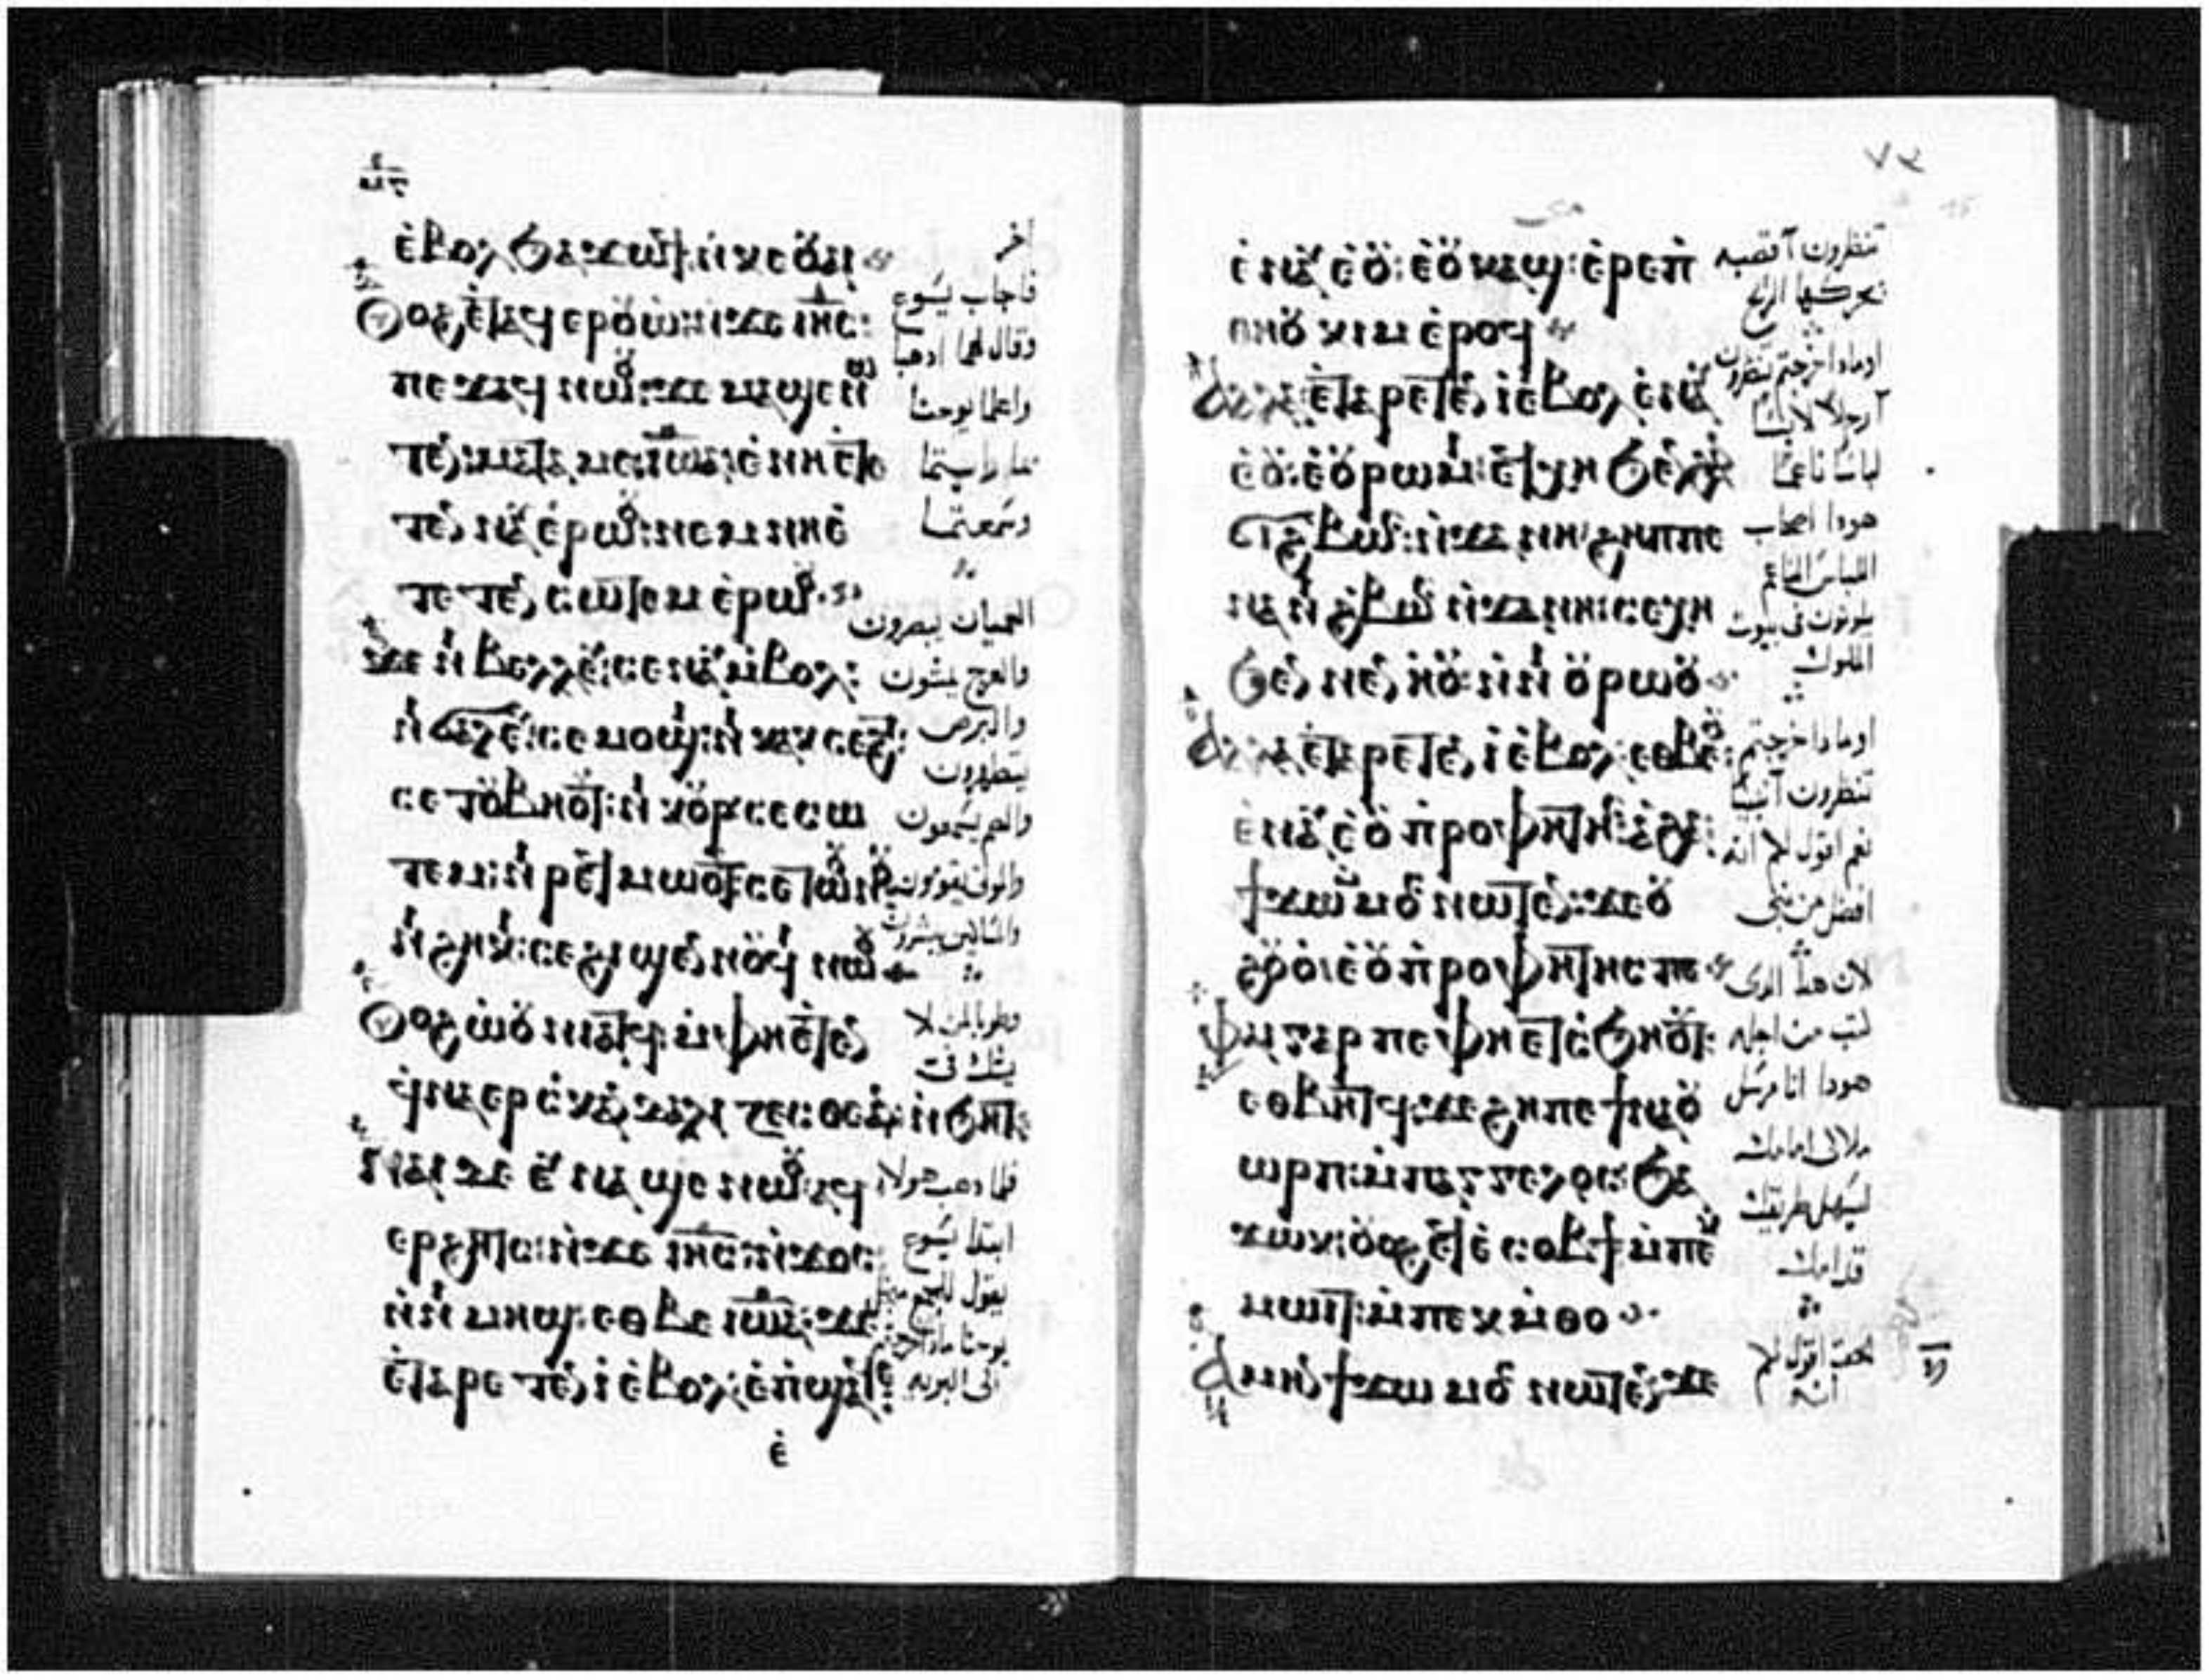 ⲉ̀ⲃⲟⲗ ϧⲁϫⲱϥ ⲛ̀ⲕⲉⲟⲩⲁⲓ
Ⲟⲩⲟϩ ⲉ̀ⲧⲁϥⲉⲣⲟⲩⲱ̀ ⲛ̀ϫⲉ ⲓⲏⲥ:
ⲡⲉϫⲁϥ ⲛⲱⲟⲩ: ϫⲉ ⲙⲁϣⲉⲛⲱ
ⲧⲉⲛ: ⲙⲁⲧⲁⲙⲉ ⲓⲱⲁ: ⲉ̀ⲛⲏ ⲉ̀ⲧⲉ
ⲧⲉⲛⲛⲁⲩ ⲉ̀ⲣⲱⲟⲩ: ⲛⲉⲙ ⲛⲏ ⲉ̀
ⲧⲉⲧⲉⲛⲥⲱⲧⲉⲙ ⲉ̀ⲣⲱⲟⲩ
ϫⲉ ⲛⲓⲃⲉⲗⲗⲉⲩ: ⲥⲉⲛⲁⲩ ⲙ̀ⲃⲟⲗ:
ⲛⲓϭⲁⲗⲉⲩ: ⲥⲉⲙⲟϣⲓ: ⲛⲓⲕⲁⲕⲥⲉϩⲧ:
ⲥⲉⲧⲟⲩⲃⲏⲟⲩⲧ: ⲛⲓⲕⲟⲩⲣ ⲥⲉⲥⲱ
ⲧⲉⲙ: ⲛⲓⲣⲉϥⲙⲱⲟⲩⲧ ⲥⲉⲧⲱⲟⲩⲛⲟⲩ
ⲛⲓϩⲏⲕⲓ: ⲥⲉϩⲓϣⲉⲛⲛⲟⲩϥⲓ ⲛⲱⲟⲩ
Ⲟⲩⲟϩ ⲱ̀ⲟⲩⲛⲓⲁⲧϥ ⲙ̀ⲫⲏ ⲉ̀ⲧⲉⲛ
ϥⲛⲁⲉⲣⲥⲕⲁⲛⲇⲁⲗⲓⲍⲉⲥⲑⲉ ⲁⲛ ⲛ̀ϧⲏⲧ:
Ⲛⲁⲓ ⲇⲉ ⲉⲩⲛⲁϣⲉ ⲛⲱⲟⲩ: ⲁϥ
ⲉⲣϩⲏⲧⲥ: ⲛ̀ϫⲉ ⲓⲏⲥ: ⲛ̀ϫⲟⲥ:
ⲛ̀ⲛⲓⲙⲏϣ: ⲉⲑⲃⲉ ⲓⲱⲁ: ϫⲉ
ⲉ̀ⲧⲁⲣⲉⲧⲉⲛⲓ̀ ⲉ̀ⲃⲟⲗ: ⲉ̀ⲡϣⲁϥⲉ
ⲉ̀
اخر
فاجاب يسوع
وقال لهما ادهبا
واعلما يوحنا
بما رايتما
وسمعتما
العميان يبصرون
والعرج يمشون
والبرص
يتطهرون
والصم يسمعون
والموتى يقومون
والمساكين يبشرون
وطوبا لمن لا
يشك في
فلما دهب هولا
ابتدا يسوع
يقول للجمع من اجل
يوحنا مادا خرجتم
الى البريه
٧٤
ⲉ̀ⲛⲁⲩ ⲉ̀ⲟⲩ: ⲉ̀ⲟⲩⲕⲁϣ: ⲉ̀ⲣⲉⲡⲓ
ⲑⲏⲟⲩ ⲕⲓⲙ ⲉ̀ⲣⲟϥ
Ⲁⲗⲗⲁ ⲉ̀ⲧⲁⲣⲉⲧⲉⲛⲓ̀ ⲉ̀ⲃⲟⲗ ⲉ̀ⲛⲁⲩ
ⲉ̀ⲟⲩ: ⲉ̀ⲟⲩⲣⲱⲙⲓ: ⲉ̀ⲧϫⲏ ϧⲉⲛ ϩⲁⲛ
ϩⲃⲱⲥ: ⲛ̀ϫⲏⲛ: ϩⲏⲡⲡⲉ
ⲛⲁ ⲛⲓϩⲃⲱⲥ ⲛ̀ϫⲏⲛ: ⲥⲉⲭⲏ
ϧⲉⲛ ⲛⲉⲛⲏⲟⲩ: ⲛ̀ⲛⲓⲟⲩⲣⲱⲟⲩ
Ⲁⲗⲗⲁ ⲉ̀ⲧⲁⲣⲉⲧⲉⲛⲓ̀ ⲉ̀ⲃⲟⲗ: ⲉⲑⲃⲉⲟⲩ:
ⲉ̀ⲛⲁⲩ ⲉ̀ⲟⲩⲡⲣⲟⲫⲏⲧⲏⲥ: ⲁϩⲁ:
ϯϫⲱ ⲙ̀ⲙⲟⲥ ⲛⲱⲧⲉⲛ: ϫⲉ ⲟⲩ
ϩⲟⲩⲟ̀ ⲉ̀ⲟⲩⲡⲣⲟⲫⲏⲧⲏⲥ ⲡⲉ
Ⲫⲁⲓ ⲅⲁⲣ ⲡⲉ ⲫⲏ ⲉⲧⲥϧⲏⲟⲩⲧ:
ⲉⲑⲃⲏⲧϥ: ϫⲉ ϩⲏⲡⲡⲉ ϯⲛⲁⲟⲩ
ⲱⲣⲡ: ⲙ̀ⲡⲁⲁⲅⲅⲉⲗⲟⲥ: ϧⲁ
ϫⲱⲕ: ⲟⲩⲟϩ ⲉϥⲉ̀ⲥⲟⲃϯ ⲙ̀ⲡⲉⲕ
ⲙⲱⲓⲧ: ⲙ̀ⲡⲉⲕⲙ̀ⲑⲟ
Ⲁⲙⲏⲛ ϯϫⲱ ⲙ̀ⲙⲟⲥ ⲛⲱⲧⲉⲛ: ϫⲉ
تنظرون آ قصبه
تحركها الريح
اومادا خرجتم تنظرون
آ رجلا لابسا
لباسا ناعما
هودا اصحاب
اللباس الناعم
يكونون في بيوت
الملوك
اومادا خرجتم
تنظرون آ نبيا
نعم اقول لكم انه
افضل من نبي
لان هدا الدى
كتب من اجله
هودا انا مرسل
ملاكي امامك
ليسهل طريقك
قدامك
الحق اقول لكم
انه